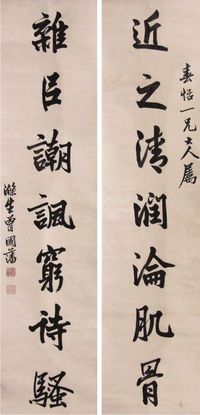 春怡一兄大人屬
近之清潤淪肌骨
雜㠯謿諷窮詩騷
滌生曾國藩